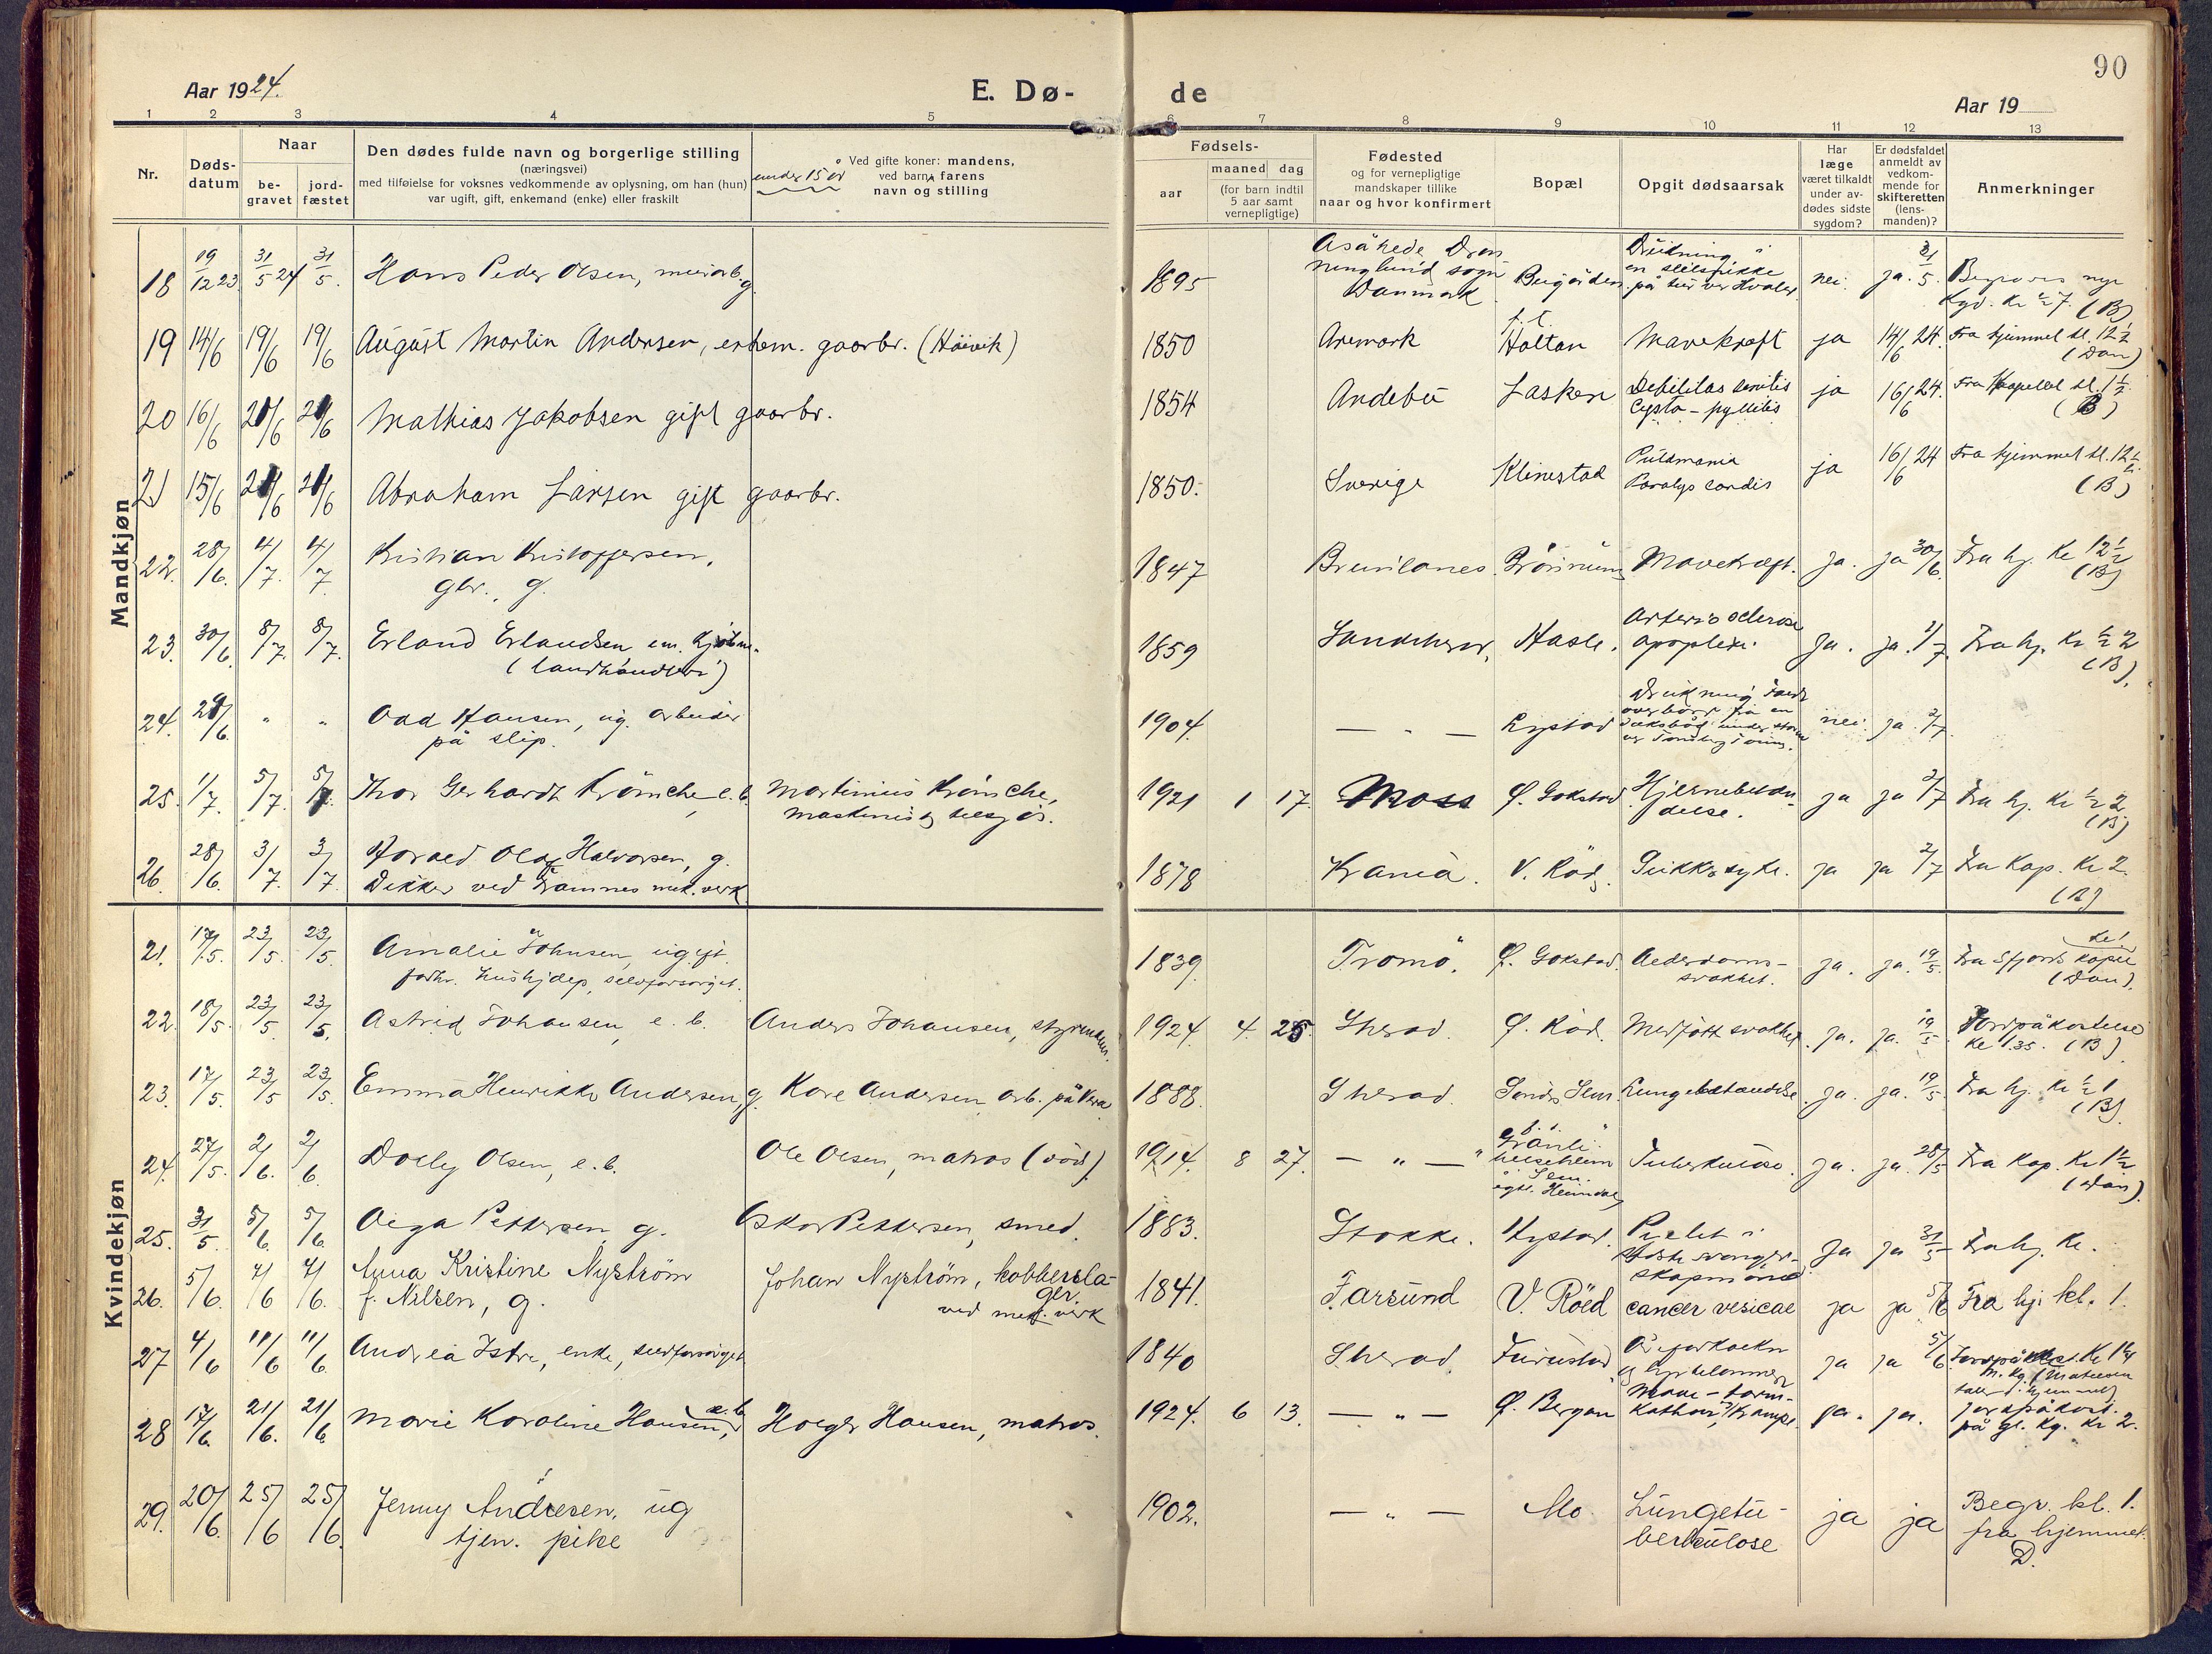 90
Aar 1924. E. Dø- de Aar 19
1 2 3 4 5 6 7 8 9 10 11 12 13
Nr.
Døds-
datum
Naar
be-
gravet
jord-
fæstet
Den dødes fulde navn og borgerlige stilling
(næringsvei)
med tilføielse for voksnes vedkommende av oplysning, om han (hun)
var ugift, gift, enkemand (enke) eller fraskilt
under 15 år
Ved gifte koner: mandens,
ved barn farens
navn og stilling
Fødsels-
aar
maaned dag
(for barn indtil
5 aar samt
vernepligtige)
Fødested
og for vernepligtige
mandskaper tillike
naar og hvor konfirmert
Bopæl
Opgit dødsaarsak
Har
læge
været tilkaldt
under av-
dødes sidste
sygdom?
Er dødsfaldet
anmeldt av
vedkom-
mende for
skifteretten
(lens-
manden)?
Anmerkninger
Mandkjøn
18 19/12 23 31/5 24 31/5. Hans Peder Olsen, 1895 Danmark nei. ja. 5. (B)
19 14/6 19/6 19/6 August Martin Andersen, enkem. gaarbr. (Häivik) 1850 Aremark f.t. Holtan Mavekræft ja 14/6 24. Fra hjemmet kl. 12 1/2 (Dan)
20 16/6 20/6 Mathias Jakobsen gift gaarbr. 1854 Andebu Lasken Debilitas senilis ja 16/6 24. Fra Kapellet kl. 1 1/2 (B)
21 15/6 Abraham Larsen gift gaarbr. 1850. Sverige Klinestad Paralys cordis ja 16/6 24 Fra hjemmet kl. 12 1/2 (B)
22. 28/6. 4/7. 4/7. Kristian Kristoffersen,
gbr., g. 1847 Brunlanes Mavekræft. ja. ja 30/6. Fra hj. Kl 12 1/2 (B)
23. 30/6. 8/7. 8/7. Erland Erlandsen em.
(landhandleri) 1859 Hasle. apoplexi. ja. ja. 1/7. Fra hj. Kl 1/2 2 (B).
24. 29/6. " " Odd Hansen, ug. arbeider
på slip. 1904. — " — nei. ja. 2/7.
25. 1/7. 5/7. 5/7. Thor Gerhardt Krömcke, e.b. Martinius Krömcke, 1921 1 17. Moss Ø. Gokstad ja ja 2/7 Fra hj. Kl 1/2 2 (B)
26. 28/6. 3/7. 3/7. Olaf Halvorsen, g.
Dekker ved Framnes mek. verk 1878 Krania. V. Röd. Sukkersyke. ja ja 2/7 Fra Kap. Kl 2. (B)
Kvindekjøn
21. 17/5. 23/5. 23/5. Amalie Johnsen, ugift.
forhv. hushjelp, selvforsørget. 1839. Tromö. Ø. Gokstad. Alderdoms-
svakhet. ja. ja. 19/5. (Dan).
22. 18/5. 23/5. 23/5. Astrid Johansen, e.b. Anders Johansen, 1924. 4. 25. Sherad. Ø. Röd. Medfött svakhet. ja. ja. 19/5. Jordpåkastelse
kl 1.35. (B)
23. 17/5. 23/5 23/5. Emma Henrikke Andersen, g. Kare Andersen arb. på 1888. Sherad. Lungebetændelse. ja. ja. 19/5. Fra hj. Kl 1/2 1 (B).
24. 27/5. 2/6. 2/6. Dolly Olsen, e.b. Ole Olsen, matros (död). 1914. 8 27. — " — Granli
helseheim
Sem. Tuberkulose. ja. ja. 28/5 Fra Kap. Kl 1 1/2 (Dan).
25. 31/5. 5/6. 5/6. Olga Pettersen, g. Oskar Pettersen, smed. 1883. Stokke. Nystad. ja ja 31/5 Fra hj. Kl.
26. 5/6. 7/6 7/6. Anna Kristine Nyström
f. Nilsen, g. Johan Nyström, kobbersla-
ger.
ved mek. verk 1841. Farsund V. Röed cancer vesicae ja ja 5/6 Fra hj. kl. 1.
27 4/6 11/6 11/6 Andrea Istre, enke, selvforsørget 1840 Sherad. Furustad ja ja 5/6
28 17/6. 21/6. 21/6 Marie Karoline Hansen, e.b. Holger Hansen, matros. 1924. 6 13. — " — Ø. Bergan Mave-tarm-
ja. ja. jordpåkast.
på gl. Kg. Kl 2.
29. 20/6. 25/6 25/6. Jenny Andresen, ug
tjen. pike 1902. — " — Mo. Lungetu-
berkulose ja ja Begr. kl. 1.
fra hjemmet.
D.